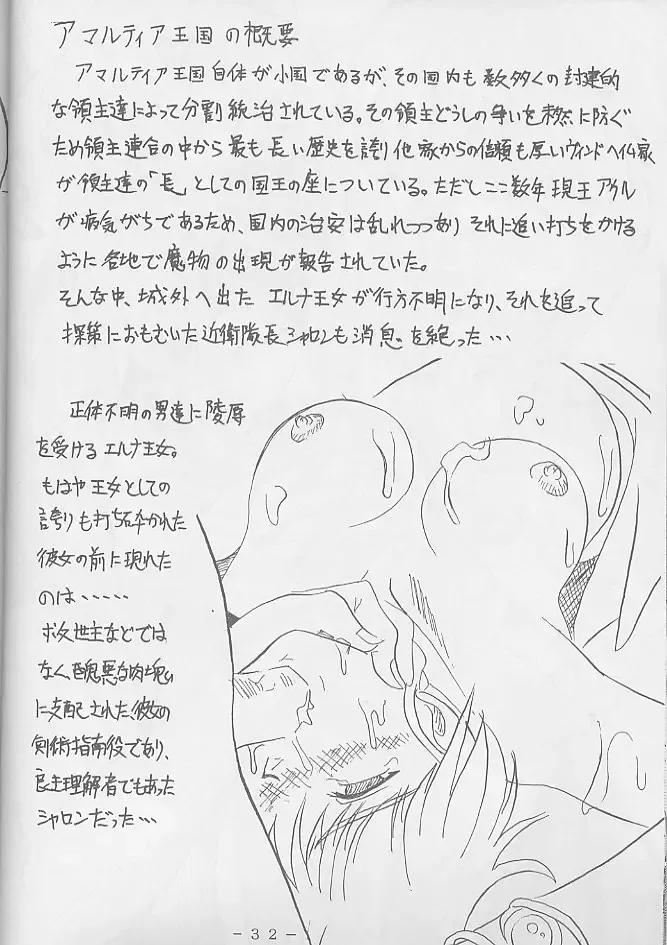 アマルティア王国の概要
アマルティア王国自体が小国であるが、その国内も数多くの封建的
な領主達によって分割統治されている。その領主どうしの争いを未然に防ぐ
ため領主連合の中から最も長い歴史を誇り他家からの信頼も厚いウィンドヘイム家
が領主達の「長」としての国王の座についている。ただしここ数年現王アグル
が病気がちであるため、国内の治安は乱れつつあり それに追い打ちをかける
ように各地で魔物の出現が報告されていた。
そんな中、城外へ出た エルナ王女が行方不明になり、それを追って
探策におもむいた近衛隊長シャロンも消息を絶った…
正体不明の男達に陵辱
を受けるエルナ王女。
もはや王女としての
誇りも打ち砕かれた
彼女の前に現れた
のは‥‥‥
救世主などでは
なく、醜悪な肉塊
に支配された、彼女の
剣術指南役であり、
良き理解者でもあった
シャロンだった…
-32-